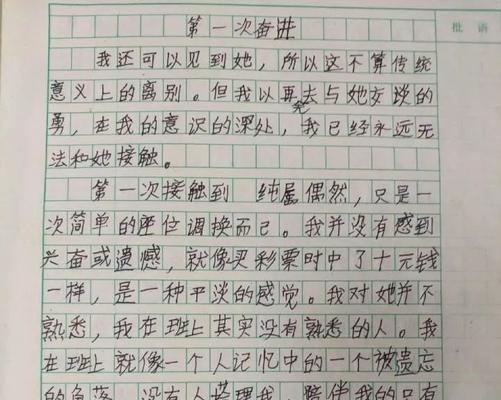 批语
第一次奋进
我还可以见到她，所以这不算传统
意义上的离别。但我以再去与她交谈的
勇，在我的意识的深处，我已经永远无
法和她接触。
第一次接触到 纯属偶然，只是一
次简单的座位调换而已。我并没有感到
兴奋或遗憾，就像买彩票时中了十元钱
一样，是一种平淡的感觉。我对她并不
熟悉，我在班上其实没有熟悉的人。我
在班上就像一个人记忆中的一个被遗忘
的角落，没有人搭理我，陪伴我的只有